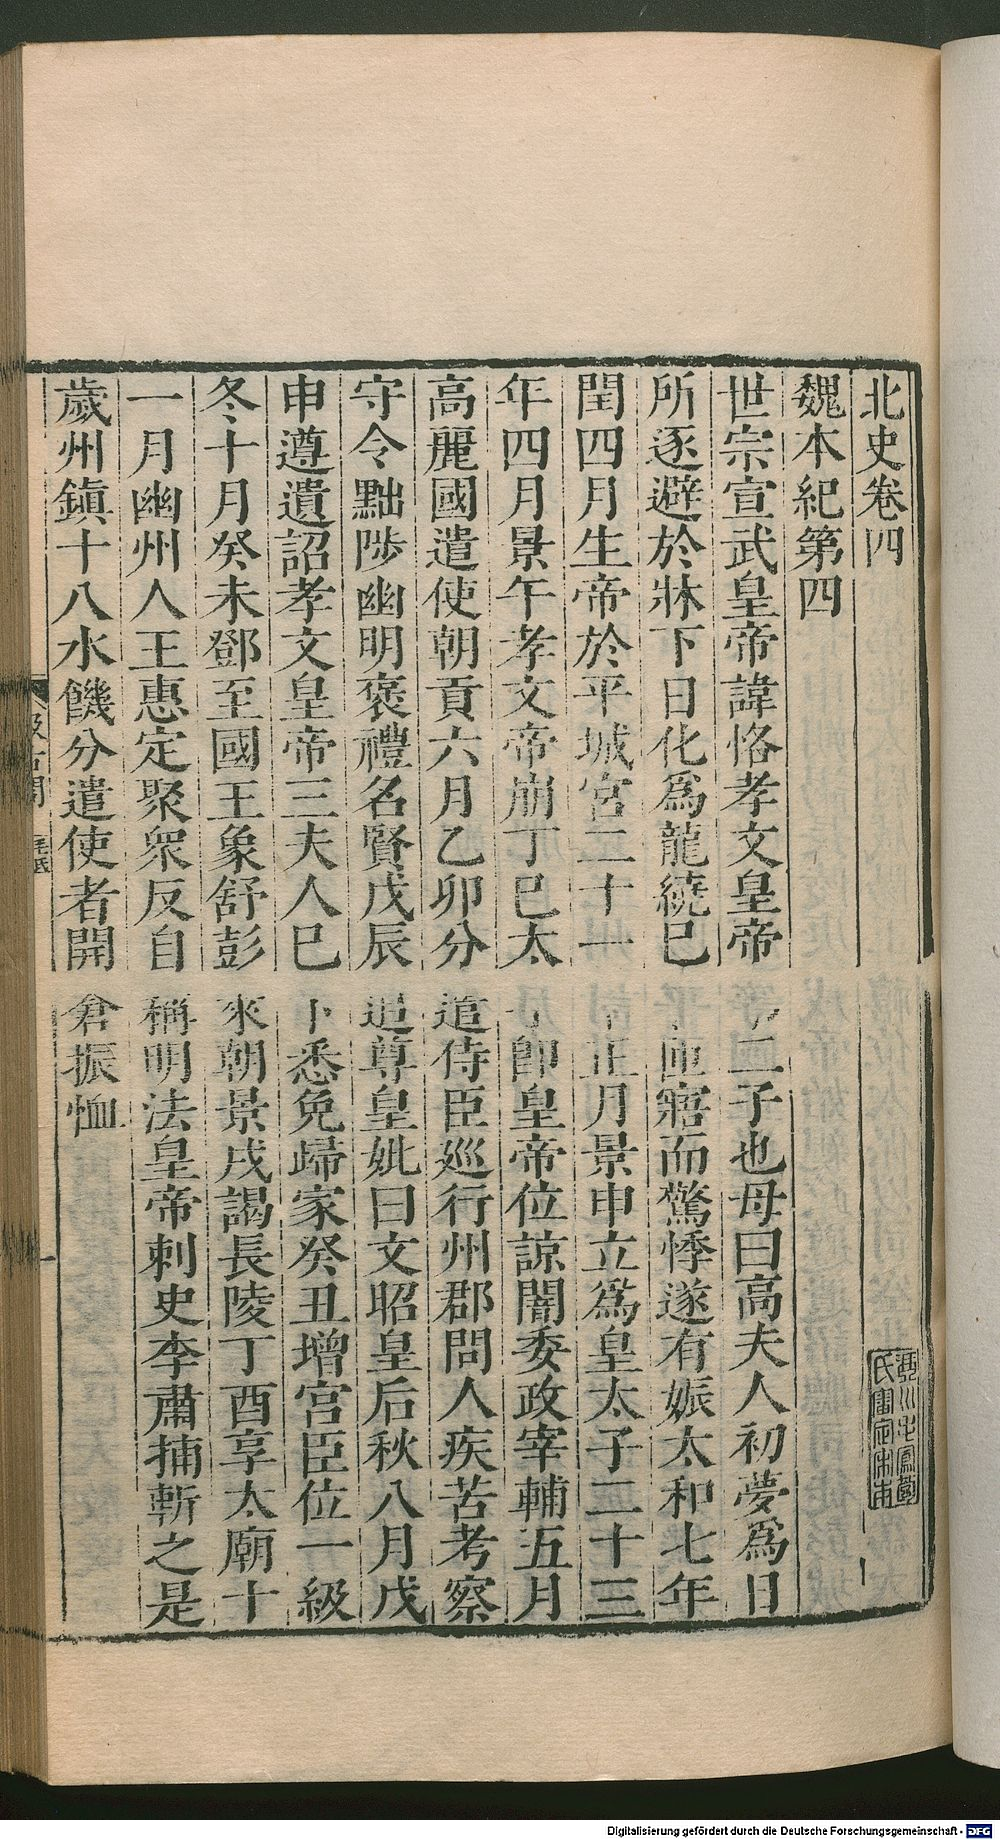 北史卷四
魏本紀第四
世宗宣武皇帝諱恪孝文皇帝二子也母曰高夫人初夢爲日
所逐避於牀下日化爲龍繞已匝寤而驚悸遂有娠太和七年
閏四月生帝於平城宮二十一正月景申立爲皇太子二十三
年四月景午孝文帝崩丁巳太卽皇帝位諒闇委政宰輔五月
高麗國遣使朝貢六月乙卯分遣侍臣巡行州郡問人疾苦考察
守令黜陟幽明褒禮名賢戊辰追尊皇妣曰文昭皇后秋八月戊
申遵遺詔孝文皇帝三夫人已下悉免歸家癸丑增宮臣位一級
冬十月癸未鄧至國王象舒彭來朝景戌謁長陵丁酉享太廟十
一月幽州人王惠定聚衆反自稱明法皇帝刺史李肅捕斬之是
歲州鎮十八水饑分遣使者開倉振恤
汲古閣
毛氏
氏審定宋本
Digitalisierung gefördert durch die Deutsche Forschungsgemeinschaft - DFG